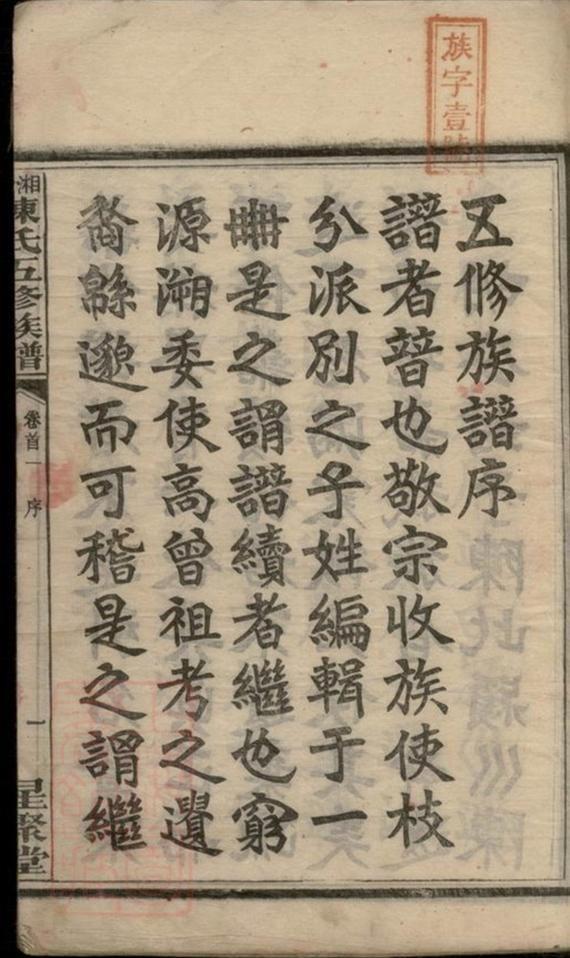 族字壹號
五修族譜序
譜者暜也敬宗收族使枝
分派別之子姓編輯于一
冊是之謂譜續者繼也窮
源溯委使高曾祖考之遺
裔緜邈而可稽是之謂繼
湘陳氏五修族譜 卷首一 序 一 星聚堂